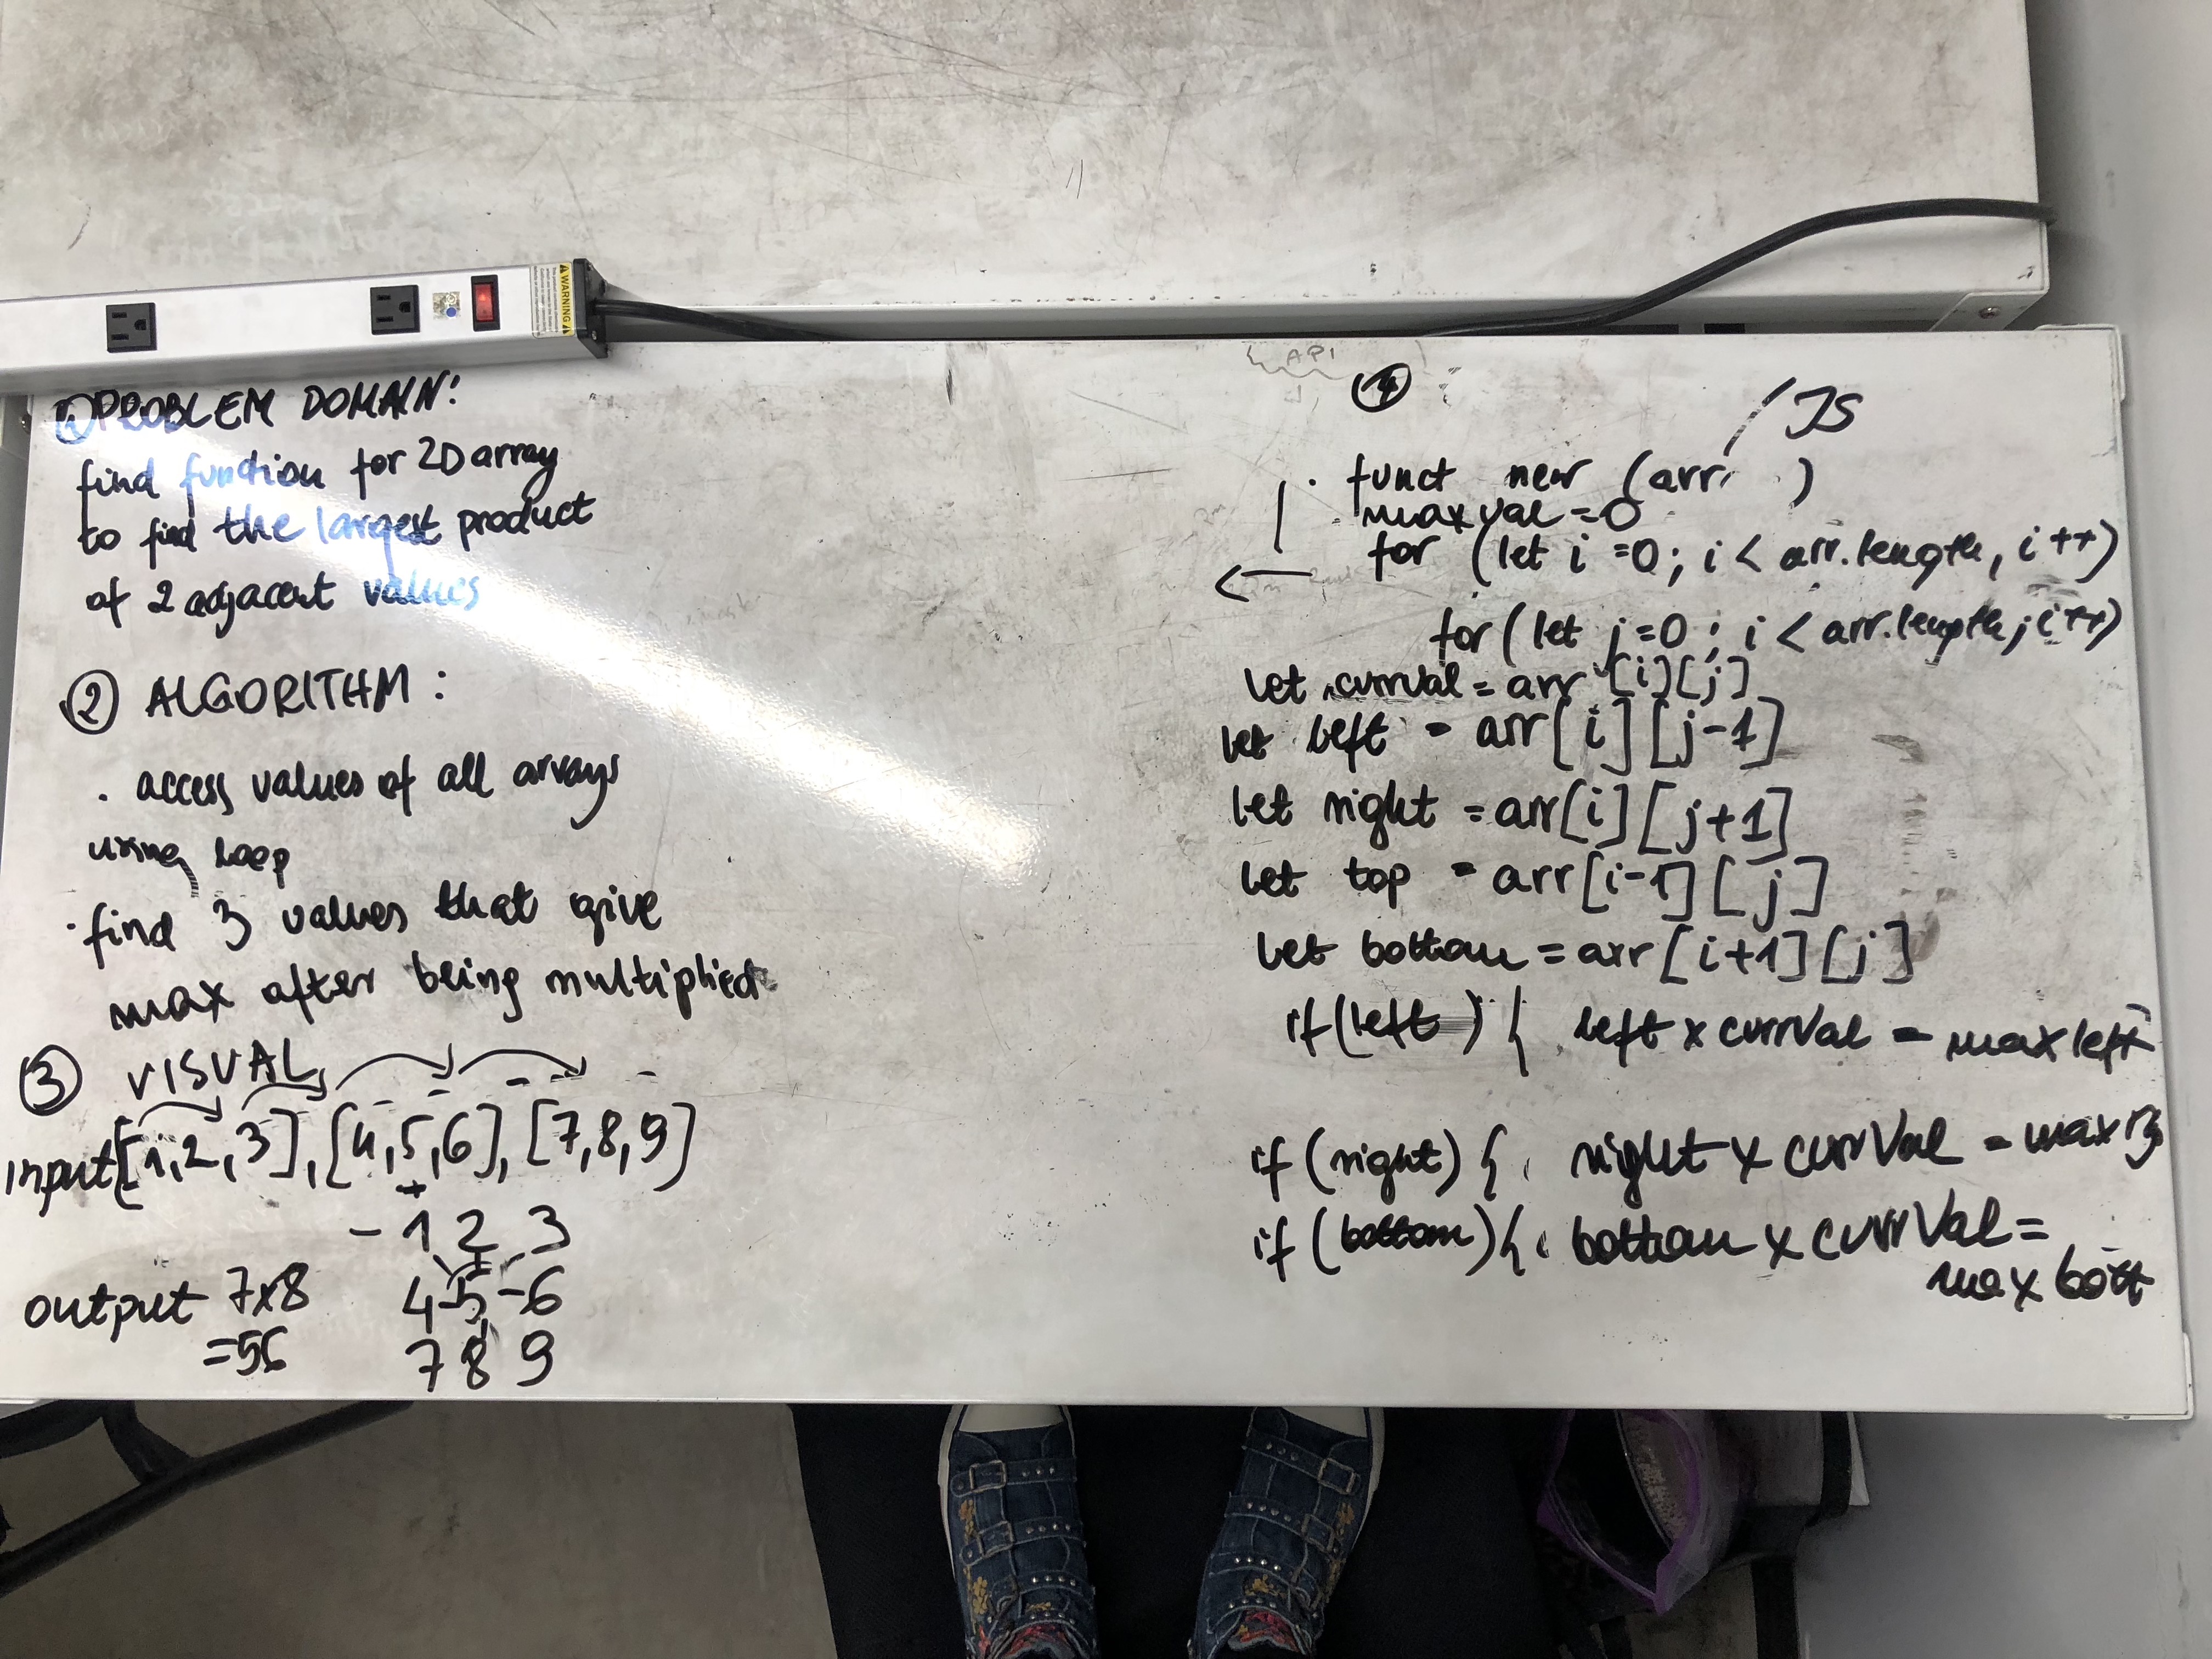 ① PROBLEM DOMAIN:
find function for 2D array
to find the largest product
of 2 adjacent values
② ALGORITHM :
. access values of all arrays
using loop
. find 3 values that give
max after being multiplied
③ VISUAL
input [1,2,3], [4,5,6], [7,8,9]
+
- 1 2 3
4-5-6
7 8 9
output 7x8
=56
API
④
/ JS
. funct new (arr )
maxval=0
for (let i=0; i < arr.length, i++)
for (let j=0; i < arr.length; i++)
let currVal = arr [i][j]
let left = arr[i][j-1]
let right = arr[i][j+1]
let top = arr[i-1][j]
let bottom = arr[i+1][j]
if (left) { left x currVal = max left
if (right) { right x currVal = max
if (bottom) { bottom x currVal =
max bott
WARNING